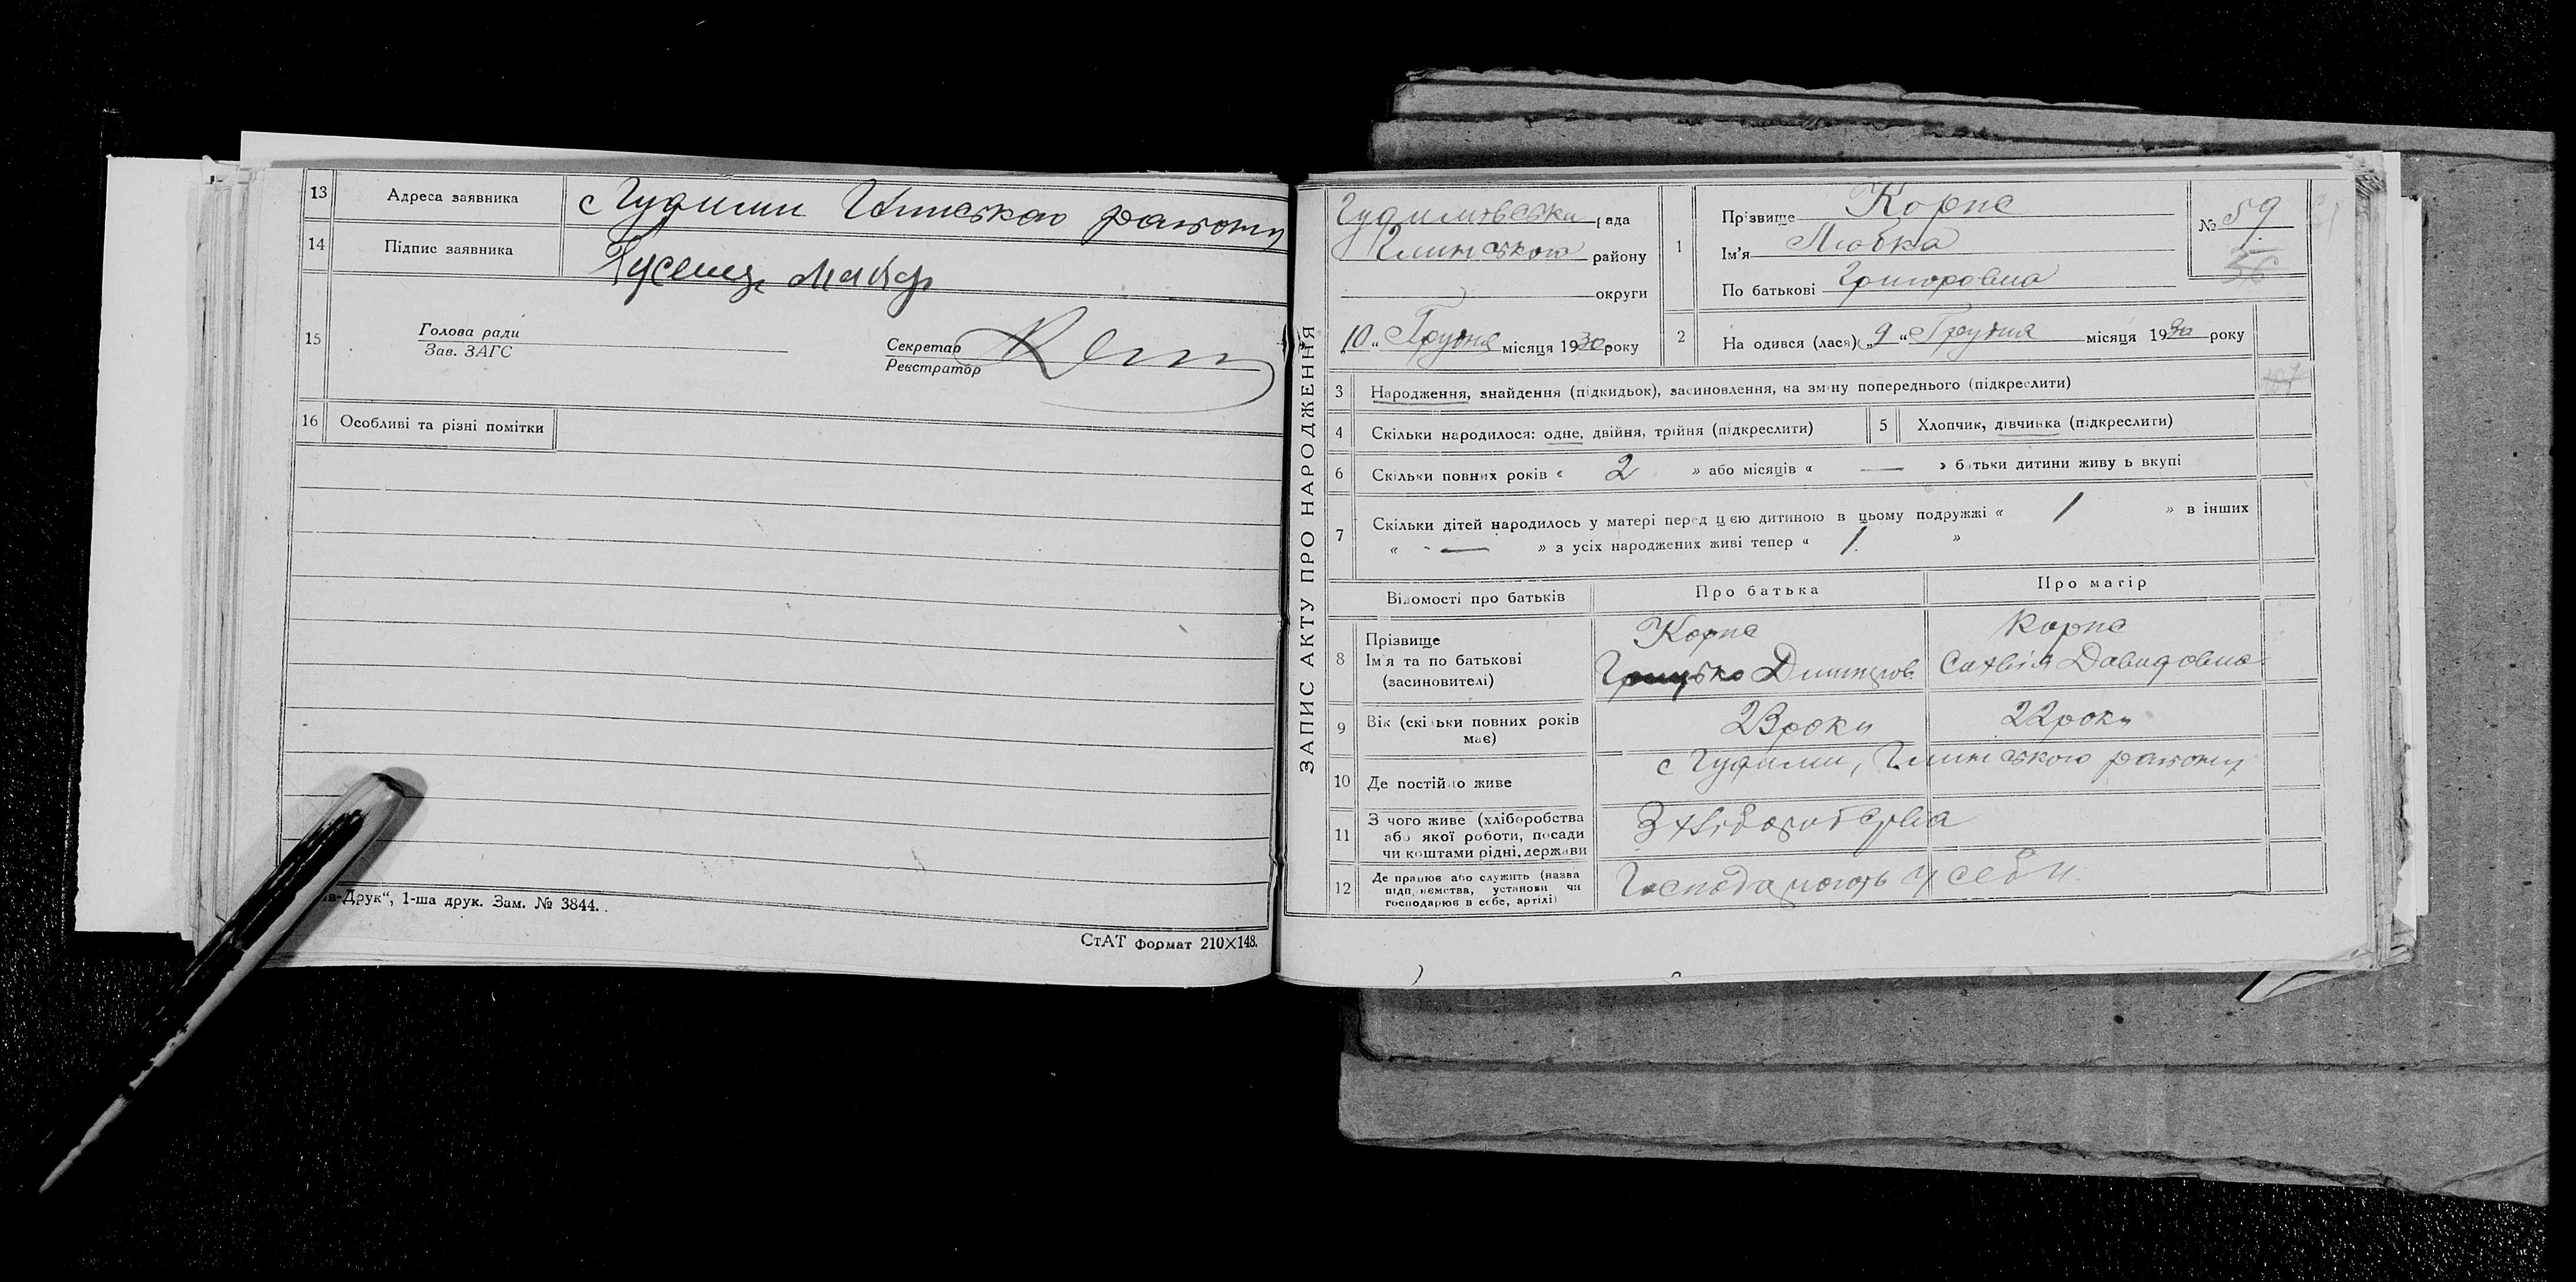 13 Адреса заявника с Гудими Глинського району
14 Підпис заявника
15 Голова ради
Зав. ЗАГС
Секретар
Реєстратор
16 Особливі та різні помітки
-Друк“, 1-ша друк. Зам. № 3844.
СтАТ формат 210×148.
ЗАПИС АКТУ ПРО НАРОДЖЕННЯ
Гудимівська рада
Глинського району
округи
„10“ Грудня місяця 1930 року
1 Прізвище Корпс
Ім'я Любка
По батькові Григоровна
№ 59
56
2 Народився (лася) „9“ Грудня місяця 1930 року
3 Народження, знайдення (підкидьок), засиновлення, на зміну попереднього (підкреслити)
4 Скільки народилося: одне, двійня, трійня (підкреслити) 5 Хлопчик, дівчинка (підкреслити)
6 Скільки повних років « 2 » або місяців « — » батьки дитини живуть вкупі
7 Скільки дітей народилось у матері перед цією дитиною в цьому подружжі « 1 » в інших
« — » з усіх народжених живі тепер « 1. »
Відомості про батьків Про батька Про матір
8 Прізвище Корпс Корпс
Ім'я та по батькові Грицько Дмитров. Давидовна
(засновителі)
9 Вік (скільки повних років має) 23 роки 22 роки
10 Де постійно живе с Гудими, Глинського району
11 З чого живе (хліборобства
або якої роботи, посади
чи коштами рідні, держави З хліборобства
12 Де працює або служить (назва
підприємства, установи чи
господарює в себе, артілі) Господарюють у себи.